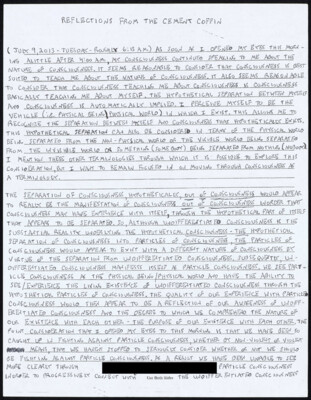 REFLECTIONS FROM THE CEMENT COFFIN
(JULY 9, 2013 - TUESDAY - 6:18 AM) AS SOON AS I OPENED MY EYES THIS MORN-
ING A LITTLE AFTER 4:00 AM, MY CONSCIOUSNESS CONTINUED SPEAKING TO ME ABOUT THE
NATURE OF CONSCIOUSNESS. IT SEEMS REASONABLE TO CONSIDER THAT CONSCIOUSNESS IS BEST
SUITED TO TEACH ME ABOUT THE NATURE OF CONSCIOUSNESS. IT ALSO SEEMS REASONABLE
TO CONSIDER THAT CONSCIOUSNESS TEACHING ME ABOUT CONSCIOUSNESS IS CONSCIOUSNESS
BASICALLY TEACHING ME ABOUT MYSELF. THE HYPOTHETICAL SEPARATION BETWEEN MYSELF
AND CONSCIOUSNESS IS AUTOMATICALLY IMPLIED. I PERCEIVE MYSELF TO BE THE
VEHICLE (i.e. PHYSICAL BEING/PHYSICAL WORLD) IN WHICH I EXIST. THIS ALLOWS ME TO
RECOGNIZE THE SEPARATION BETWEEN MYSELF AND CONSCIOUSNESS THAT HYPOTHETICALLY EXISTS.
THIS HYPOTHETICAL SEPARATION CAN ALSO BE CONSIDERED IN TERMS OF THE PHYSICAL WORLD
BEING SEPARATED FROM THE NON-PHYSICAL WORLD OR THE VISIBLE WORLD BEING SEPARATED
FROM THE INVISIBLE WORLD OR SOMETHING BEING SEPARATED FROM NOTHING
I MENTION THESE OTHER TERMINOLOGIES THROUGH WHICH IT IS POSSIBLE TO EXPLORE THIS
CONSIDERATION, BUT I WANT TO REMAIN FOCUSED IN MOVING THROUGH CONSCIOUSNESS AS
A TERMINOLOGY.
THE SEPARATION OF CONSCIOUSNESS, HYPOTHETICALLY, OUT OF CONSCIOUSNESS WOULD APPEAR
TO REALLY BE THE MANIFESTATION OF CONSCIOUSNESS OUT OF CONSCIOUSNESS IN ORDER THAT
CONSCIOUSNESS MAY HAVE EXPERIENCE WITH ITSELF, THROUGH THE HYPOTHETICAL PART OF ITSELF
THAT APPEARS TO BE SEPARATED. SO, ALTHOUGH UNDIFFERENTIATED CONSCIOUSNESS IS THE
SUBSTANTIAL REALITY UNDERLYING THE HYPOTHETICAL CONSCIOUSNESS - THE HYPOTHETICAL
SEPARATION OF CONSCIOUSNESS INTO PARTICLES OF CONSCIOUSNESS - THE PARTICLES OF
CONSCIOUSNESS WOULD APPEAR TO EXIST WITH A DIFFERENT NATURE OF CONSCIOUSNESS BY
VIRTUE OF THE SEPARATION FROM UNDIFFERENTIATED CONSCIOUSNESS.
DIFFERENTIATED CONSCIOUSNESS MANIFESTS ITSELF AS PARTICLE CONSCIOUSNESS. WE SEE PART-
ICLE CONSCIOUSNESS AS THE PHYSICAL BEING/PHYSICAL WORLD AND HAVE THE ABILITY TO
SEE/EXPERIENCE THE LIVING EXISTENCE OF UNDIFFERENTIATED CONSCIOUSNESS THROUGH THE
HYPOTHETICAL PARTICLES OF CONSCIOUSNESS. THE QUALITY OF OUR EXISTENCE WITH PARTICLE
CONSCIOUSNESS WOULD THUS APPEAR TO BE A REFLECTION OF OUR AWARENESS OF UNDIF-
FERENTIATED CONSCIOUSNESS AND THE DEGREE TO WHICH WE COMPREHEND THE NATURE OF
OUR EXISTENCE WITH EACH OTHER - THE PURPOSE OF OUR EXISTENCE WITH EACH OTHER. THE
FIRST CONSIDERATION THAT I OPENED MY EYES TO THIS MORNING IS THAT WE HAVE BEEN SO
CAUGHT UP IN FIGHTING AGAINST PARTICLE CONSCIOUSNESS, WHETHER BY NON-VIOLENT OR VIOLENT
MEANS, THAT WE HAVEN'T STOPPED TO SERIOUSLY CONSIDER WHETHER OR NOT WE SHOULD
BE FIGHTING AGAINST PARTICLE CONSCIOUSNESS. AS A RESULT WE HAVE BEEN UNABLE TO SEE
MORE CLEARLY THROUGH PARTICLE CONSCIOUSNESS
IN ORDER TO PROGRESSIVELY CONNECT WITH THE UNDIFFERENTIATED CONSCIOUSNESS